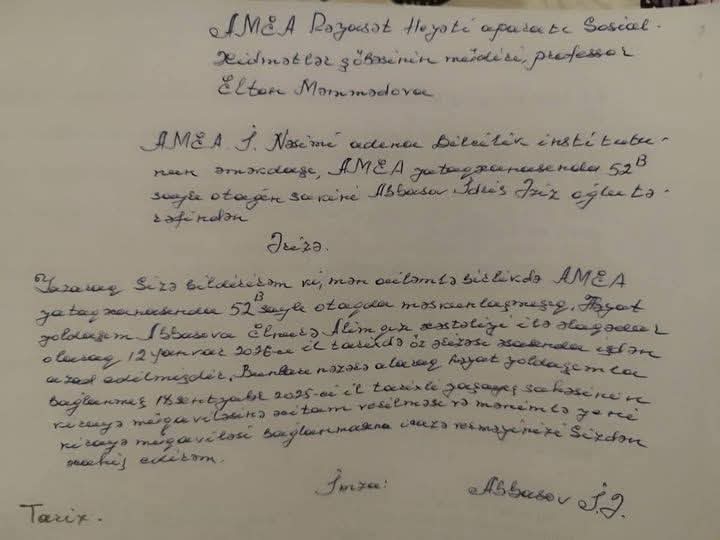 AMEA Rəyasət Heyəti aparatı Sosial
Xidmətlər şöbəsinin müdiri, professor
Elton Məmmədova
AMEA İ. Nəsimi adına Dilçilik institutu-
nun əməkdaşı, AMEA yataqxanasında 52ᴮ
saylı otağın sakini Abbasov İdris Əziz oğlu tə-
rəfindən
Ərizə.
Yazaraq Sizə bildirirəm ki, mən ailəmlə birlikdə AMEA
yataqxanasında 52ᴮ saylı otaqda məskunlaşmışıq. Həyat
yoldaşım Abbasova Elmirə Alim qızı xəstəliyi ilə əlaqədar
olaraq 12 yanvar 2026-cı il tarixdə öz ərizəsi əsasında işdən
azad edilmişdir. Bunları nəzərə alaraq həyat yoldaşımla
bağlanmış 18 sentyabr 2025-ci il tarixli yaşayış sahəsinin
kirayə müqaviləsinə xitam verilməsi və mənimlə yeni
kirayə müqaviləsi bağlanmasına icazə verməyinizi Sizdən
xahiş edirəm.
İmza: Abbasov İ.Ə.
Tarix.